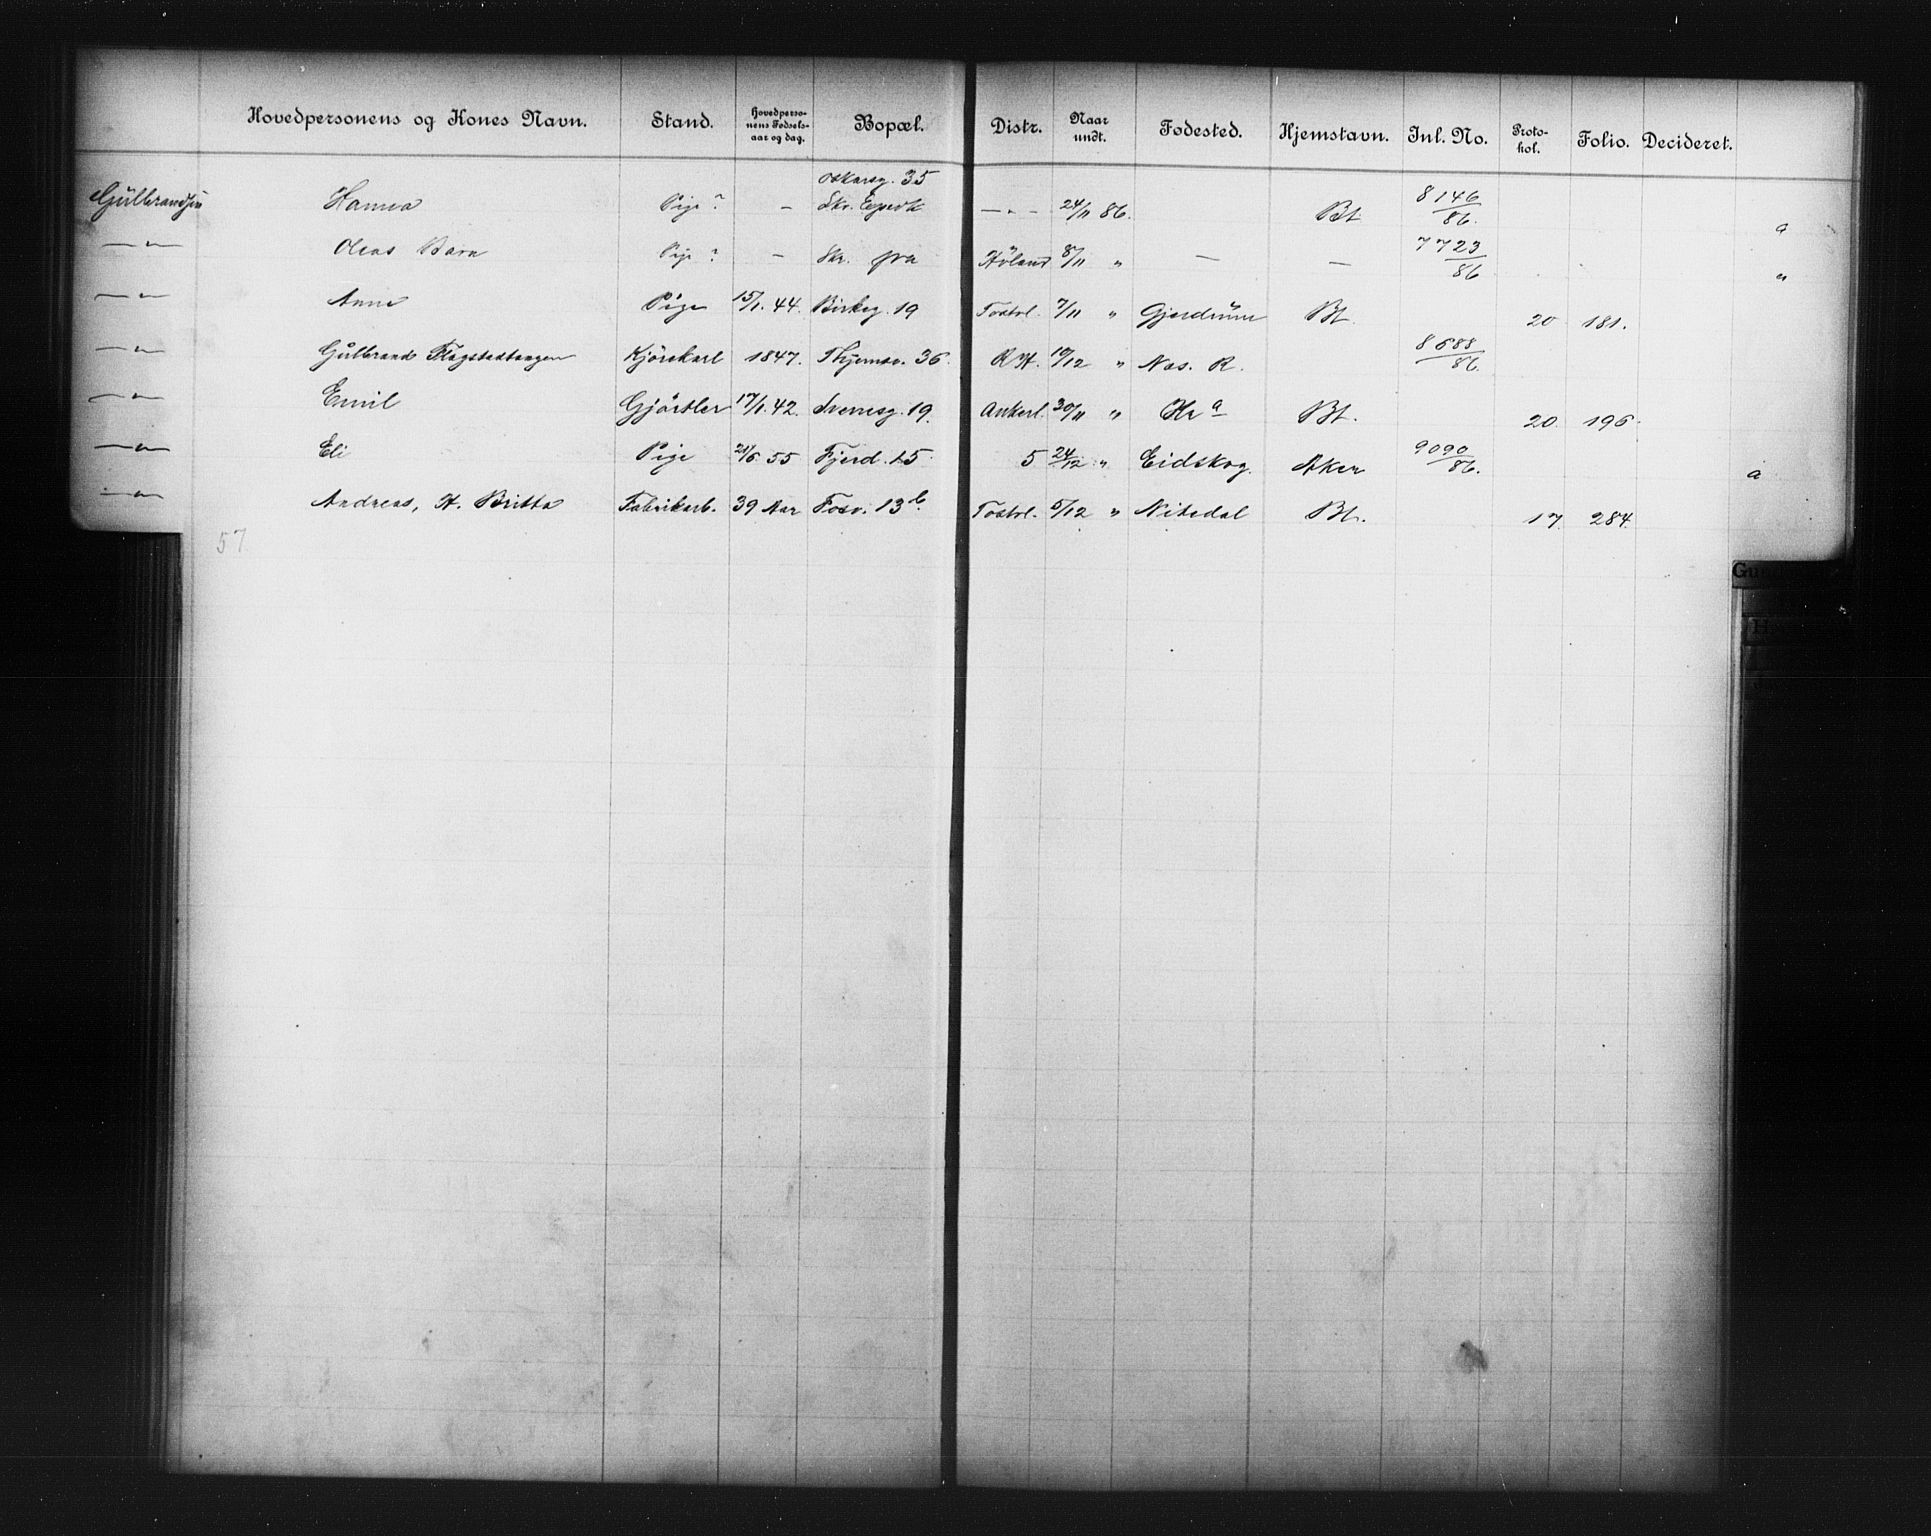 Hovedpersonens og Kones Navn. Stand. Hovedperso-nens Fødsels-aar og dag. Bopæl. Distr. Naar undt. Fødested. Hjemstavn. Inl. No. Proto-kol. Folio. Decideret.
Oskarsg. 35
Gulbrandsen Hanna Pige ? — Skr. — " — 24/11 86. Bt. 8146/86. a
— " — Oleas Barn Pige ? — Skr. fra Høland 8/11 " — — 7723/86 "
— " — Anne Pige 15/1. 44. Birkeg. 19 Tostvl. 7/11 " Gjerdrum Bt. 20 181.
— " — Gulbrand Flagstadtangen Kjørekarl 1847. 36. R.H. 19/12 " Nes. R. 8688/86.
— " — Emil Gjørtler 17/1. 42. 19. Ankerl. 30/11 " Kra Bt. 20. 196.
— " — Eli Pige 21/6 55 Fjerd. 15. 5 24/12 " Eidskog. Aker 9090/86. a
— " — Andreas, H. Britta Fabrikarb. 39 Aar Fosv. 13b. Tostvl. 5/12 " Nitedal Bt. 17. 284.
57